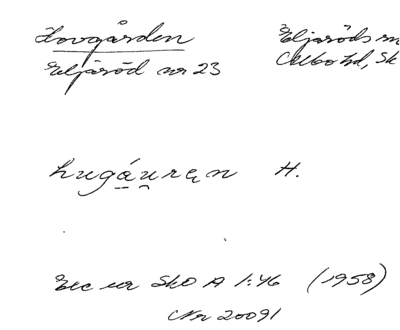 Hovgården
Eljaröds sn
Eljaröd nr 23
Albo hd, Sk
hugáuręn H.
Exc ur SkO A 1:46 (1958)
Nr 20091